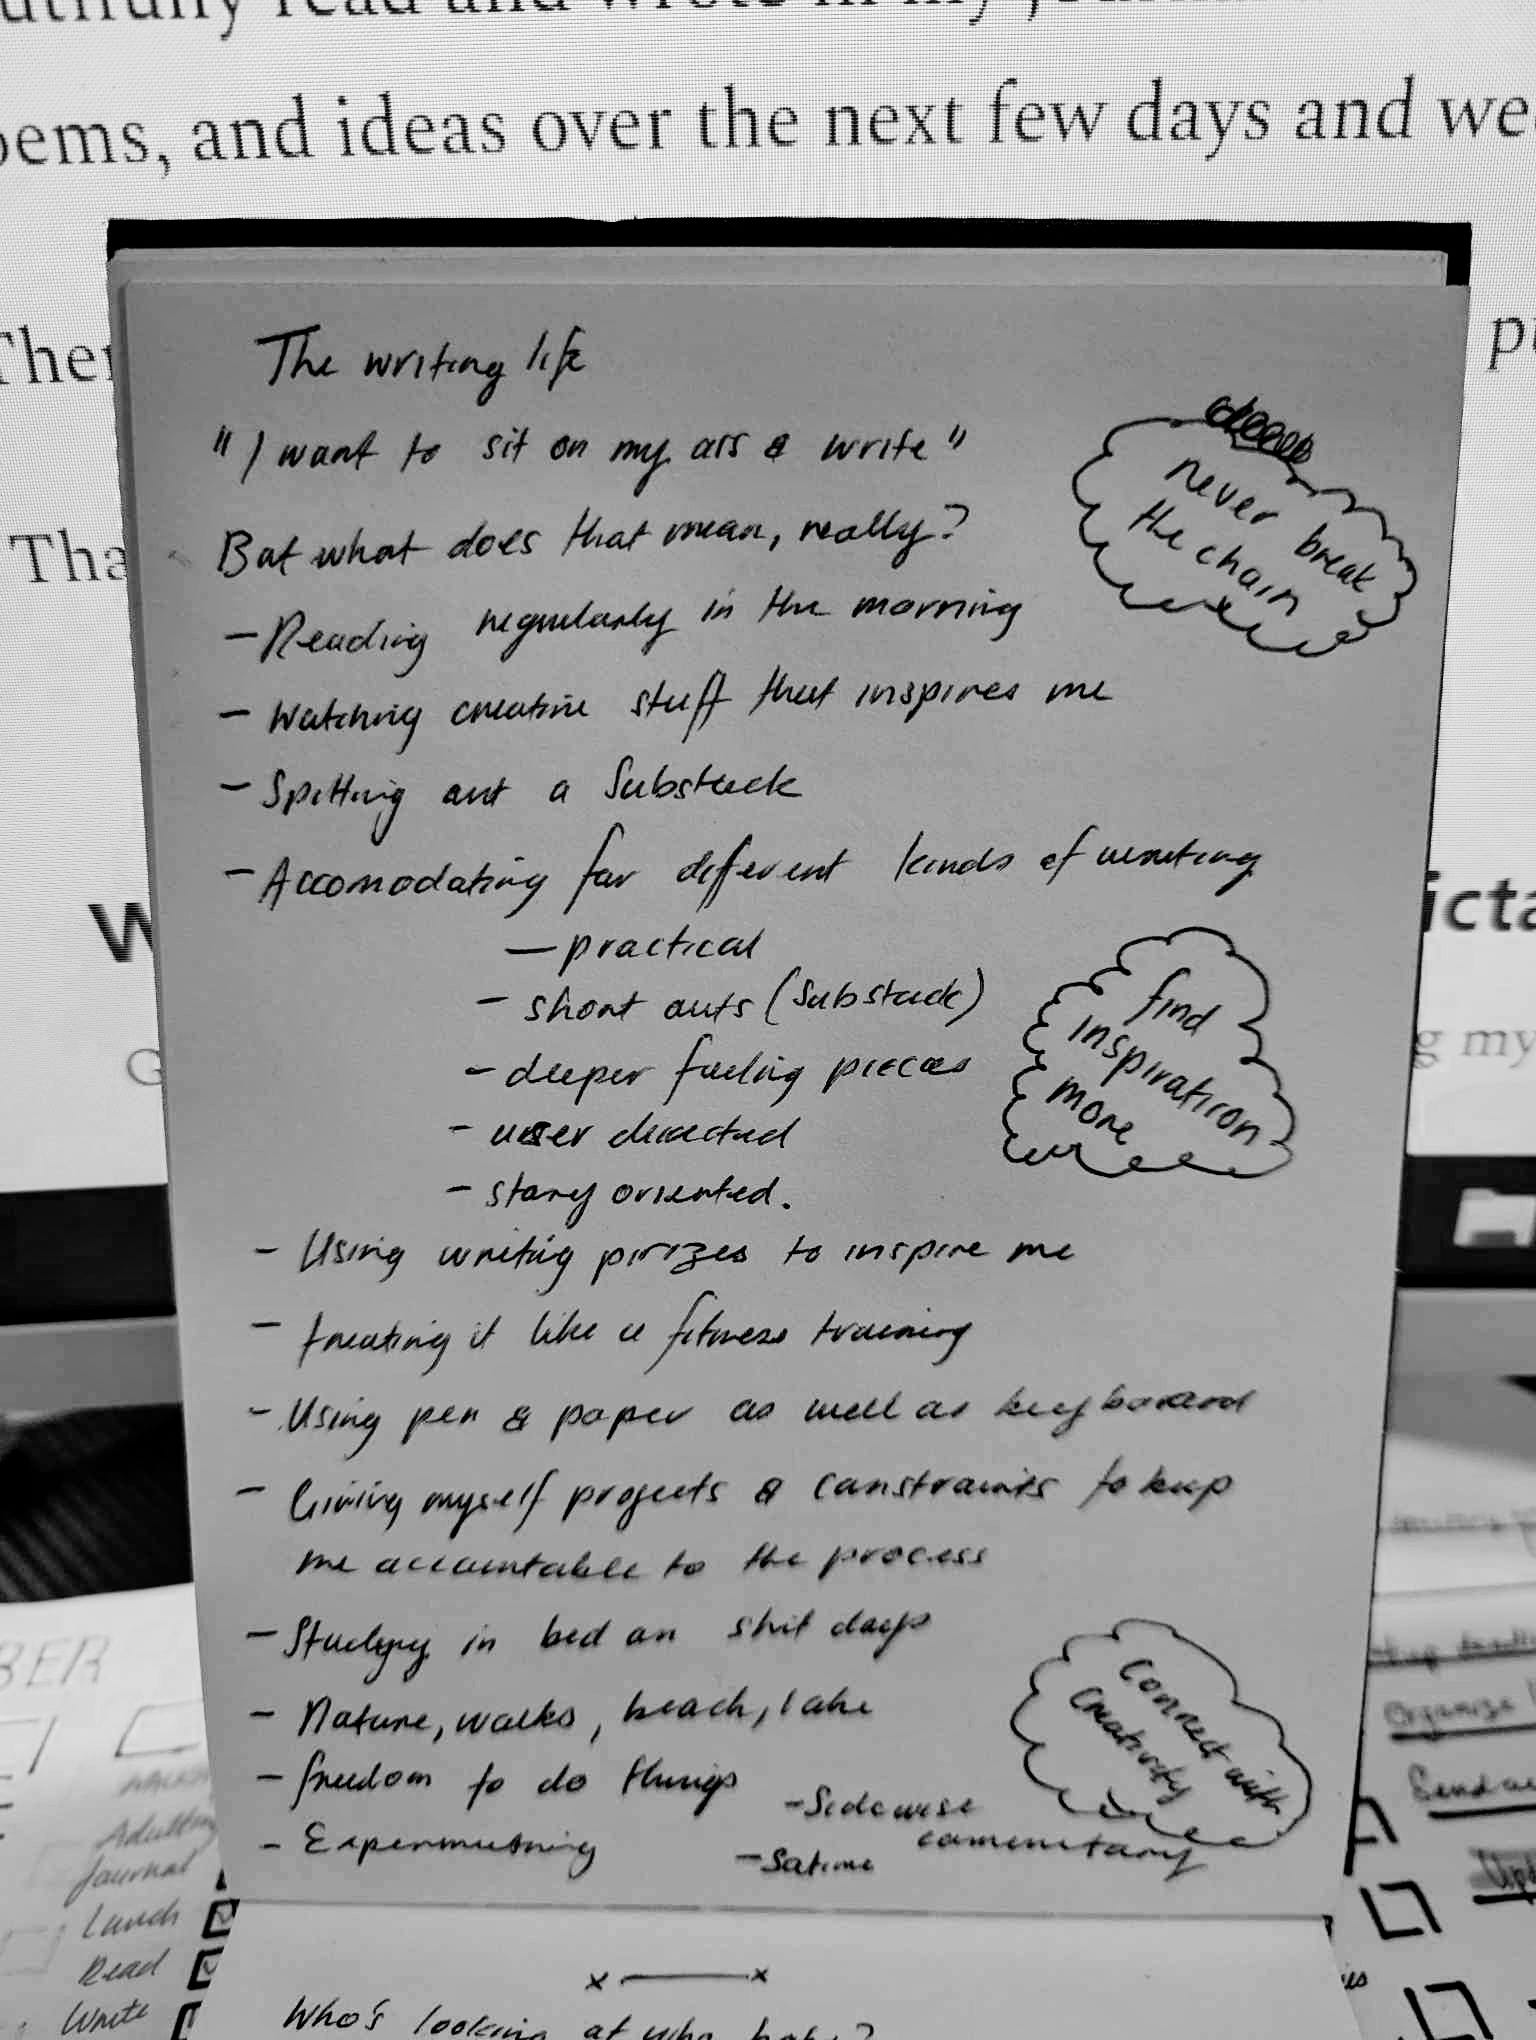 oems, and ideas over the next few days and
The writing life
"I want to sit on my ass & write"
But what does that mean, really?
never break
the chain
- Reading regularly in the morning
- Watching creative stuff that inspires me
- Spitting out a Substack
- Accomodating for different kinds of writing
- practical
- short outs (Substack)
- deeper feeling pieces
- user directed
- story oriented.
find
inspiration
more
- Using writing prizes to inspire me
- treating it like a fitness training
- Using pen & paper as well as keyboard
- Giving myself projects & constraints to keep
me accountable to the process
- Studying in bed on shit days
- Nature, walks, beach, lake
- freedom to do things
- Experimenting
- Sidewise
commentary
- Satire
connect with
creativity
Who's looking at who, baby?
BER
Adulting
Journal
Lunch
Read
Write
Organize